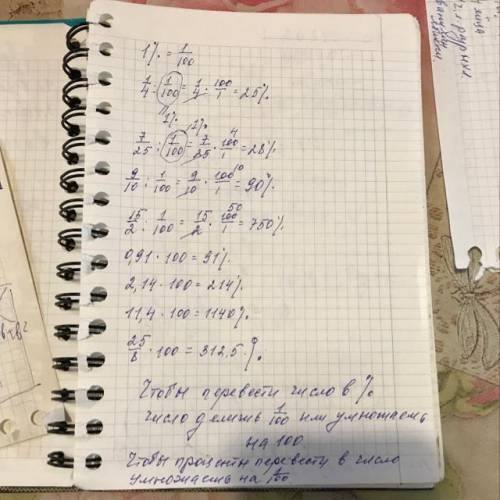 1% = 1/100
1/4 : 1/100 = 1/4 · 100/1 = 25%
1%
1%
7/25 : 1/100 = 7/25 · 100/1 = 28%
4
9/10 : 1/100 = 9/10 · 100/1 = 90%
10
15/2 : 1/100 = 15/2 · 100/1 = 750%
50
0,91 · 100 = 91%
2,14 · 100 = 214%
11,4 · 100 = 1140%
25/8 · 100 = 312,5 %
Чтобы перевести число в %
число делишь 1/100 или умножаешь
на 100
Чтобы проценты перевести в число
умножаешь на 1/100